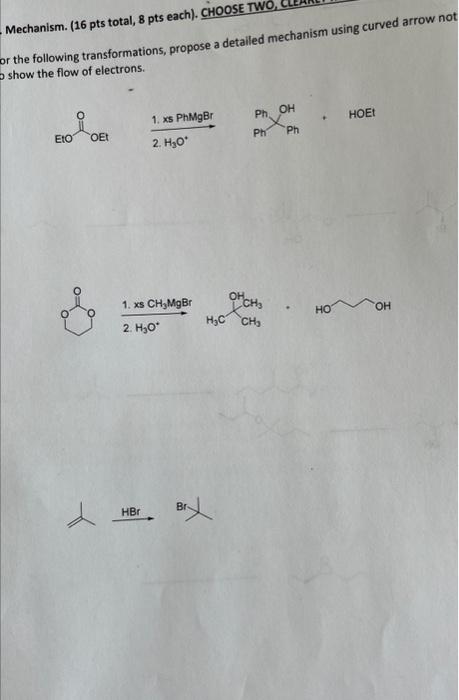 Mechanism. (16 pts total, 8 pts each). CHOOSE TWO,
or the following transformations, propose a detailed mechanism using curved arrow not
o show the flow of electrons.
O
EtO OEt
1. xs PhMgBr
2. H3O+
Ph OH
Ph Ph
HOEt
O
O O
1. xs CH3MgBr
2. H3O+
OH CH3
H3C CH3
HO OH
HBr
Br